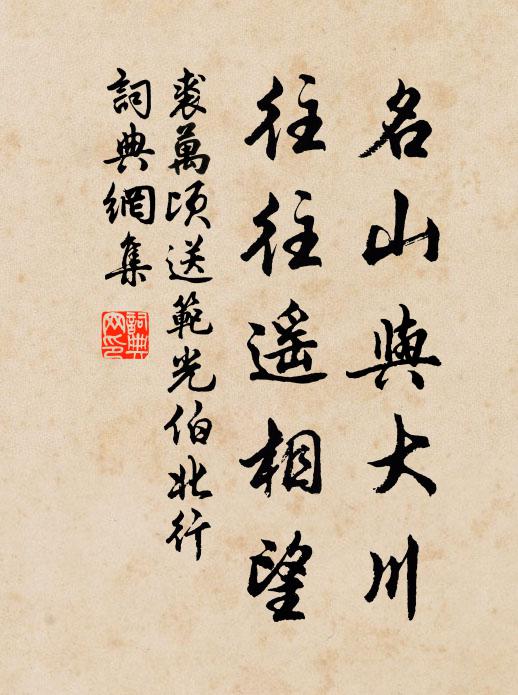 名山與大川
往往遥相望
裘萬頃送範光伯北行
詞典網集
詞典
网印